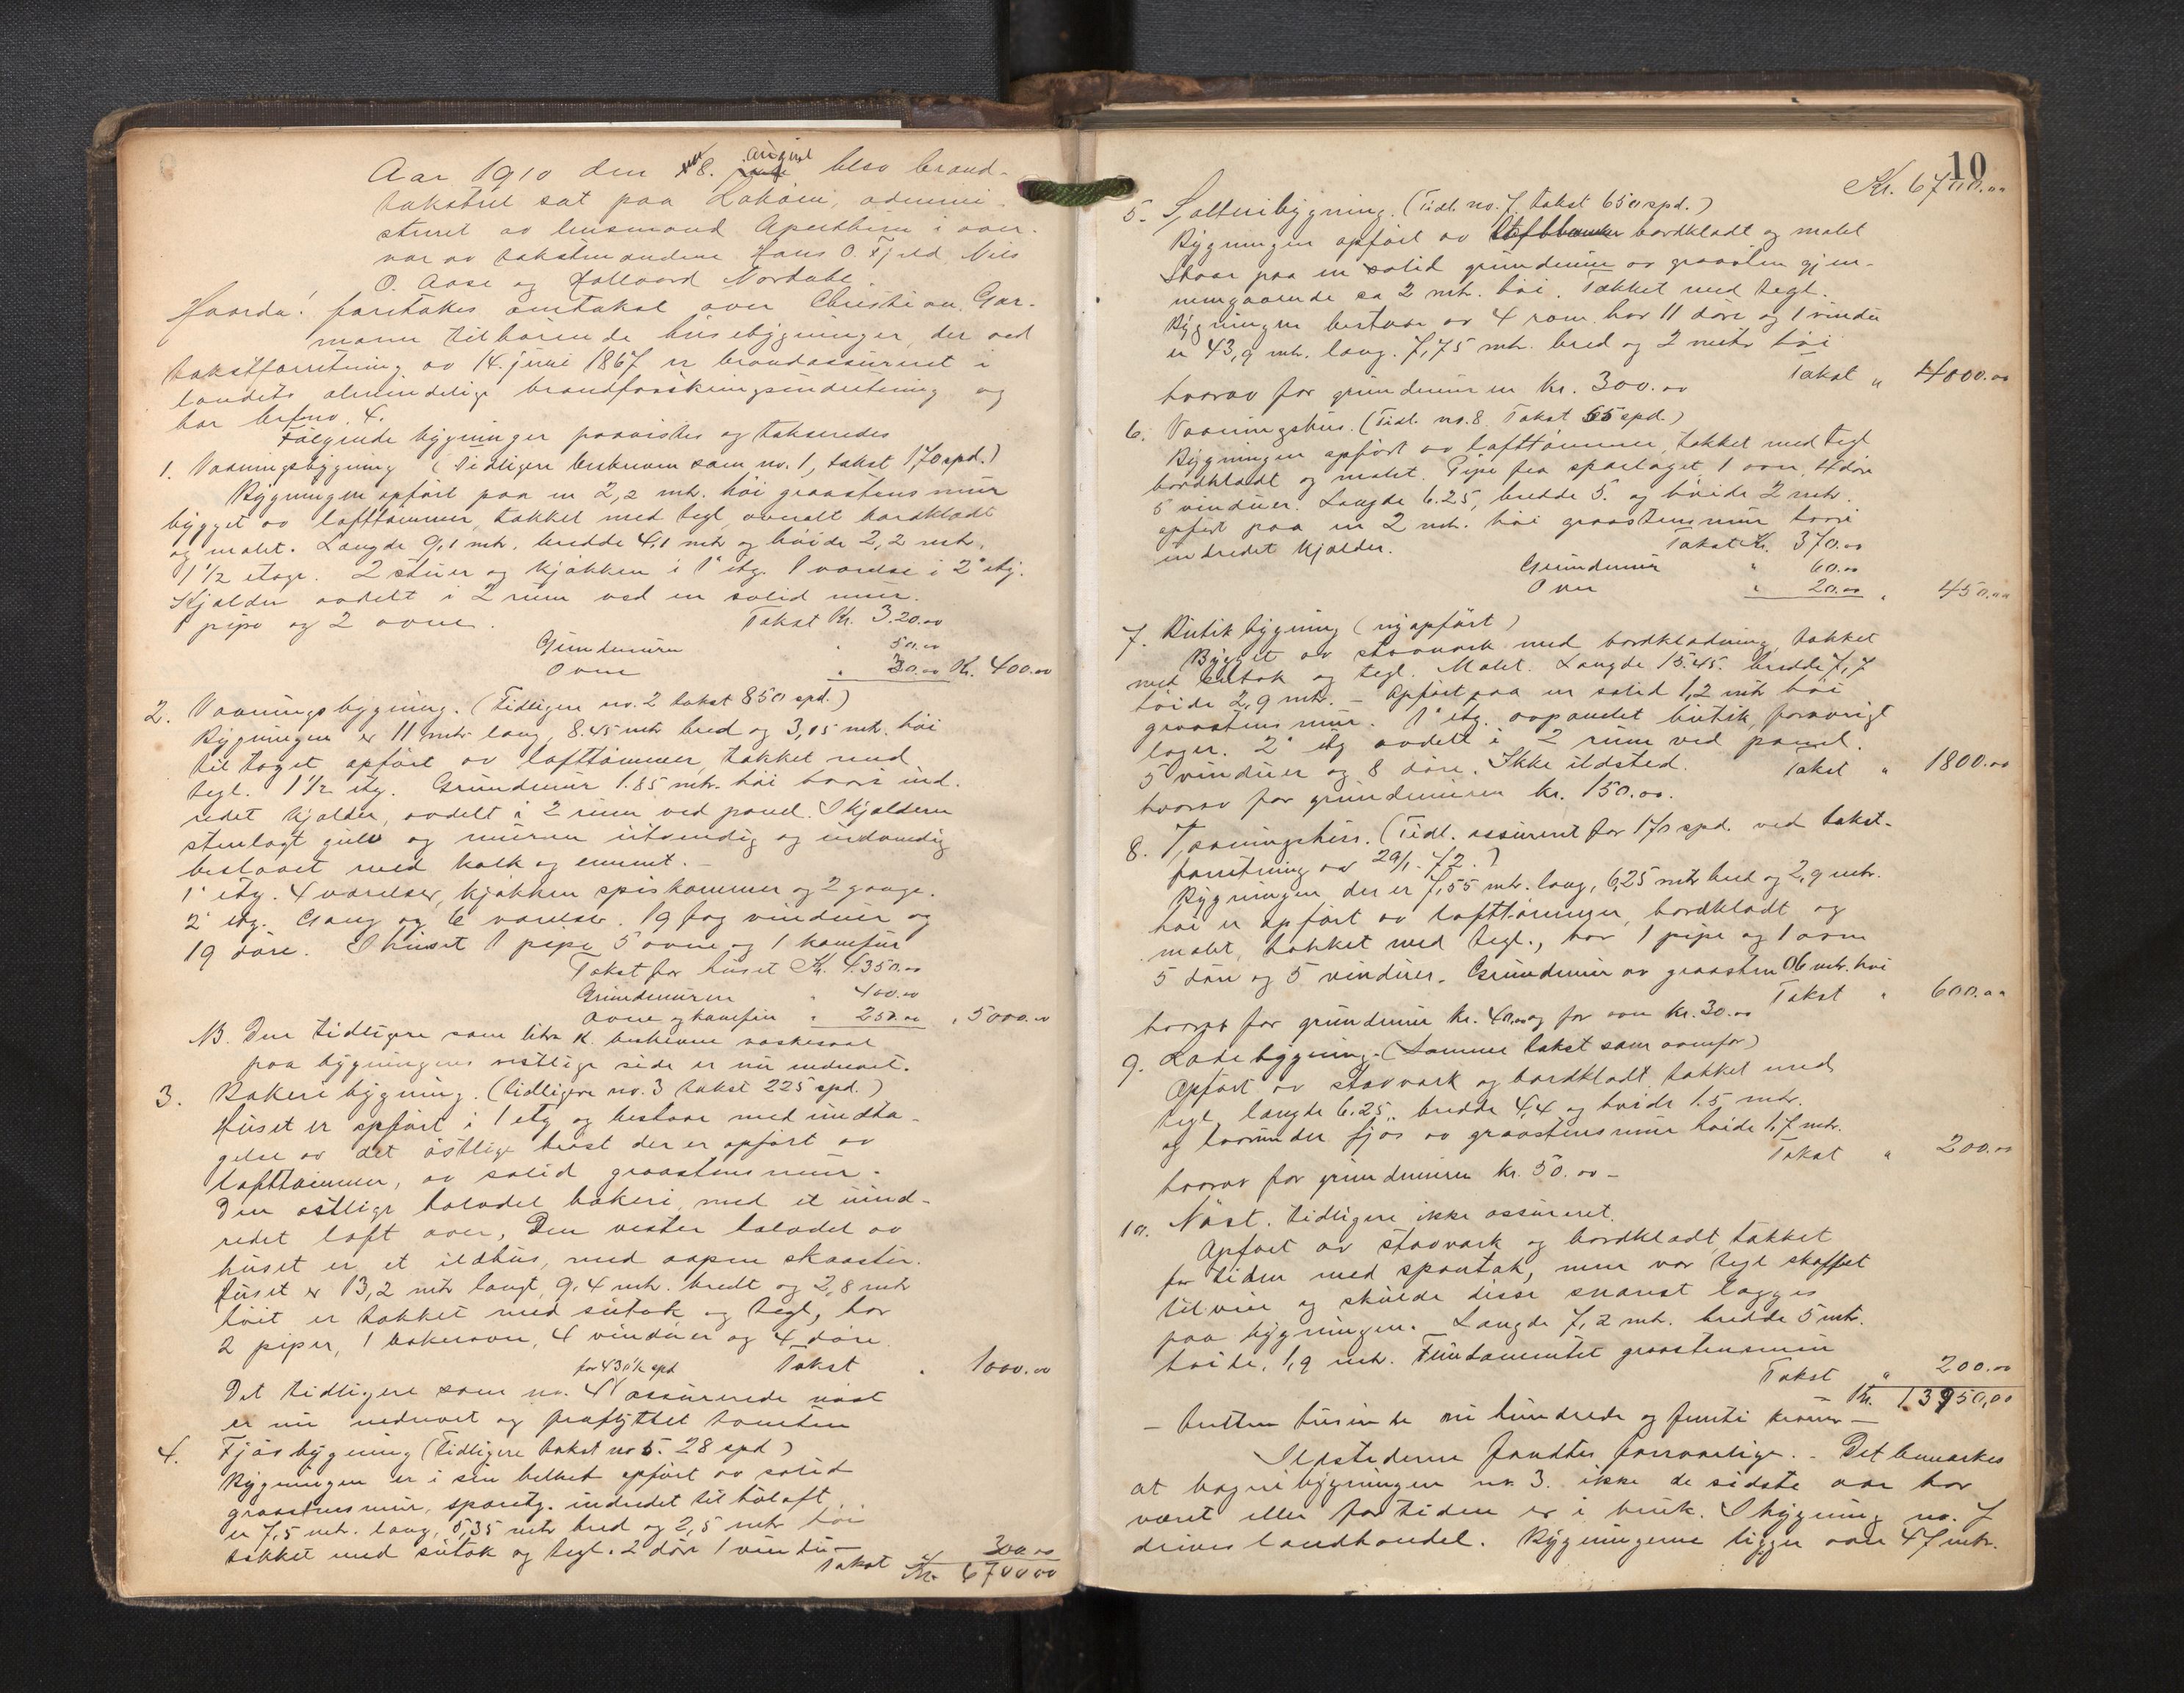 Aar 1910 den 8. august blev brand-
takstret sat paa , admini-
streret av lensmand i over-
vær av takstmændene Hans O. Fjeld, Nils
O. Aase og Hallvard Nordahl.
Hvorda! foretokes omtakst over Christian Gar-
mann tilhørende husebygninger, der ved
takstforretning av 14. juni 1867 er brandassureret i
landets almindelige brandforsikringsindretning og
har brfmo. 4.
Følgende bygninger paavistes og takseredes
1. Vaaningsbygning (Tidligere beskreven som no. 1, takst 170 spd.)
Bygningen opført paa en 2,2 mtr. høi graastensmur
bygget av lafttømmer, takket med tegl, overalt bordklædt
og malet. Længde 9,1 mtr. bredde 4,1 mtr og høide 2,2 mtr.
1 1/2 etage. 2 stuer og kjøkken i 1' etg. 1 værelse i 2' etg.
Kjælder avdelt i 2 rum ved en solid mur.
1 pipe og 2 ovne. Takst Kr. 320.00
Grundmuren " 50.00
Ovne " 30.00 Kr. 400.00
2. Vaaningsbygning. (Tidligere no. 2 takst 850 spd.)
Bygningen er 11 mtr lang, 8.45 mtr bred og 3,05 mtr. høi
til taget opført av lafttømmer, takket med
tegl. 1 1/2 etg. Grundmur 1.85 mtr. høi hvori ind-
redet kjælder, avdelt i 2 rum ved panel. I kjælderen
stenlagt gulv og muren utvendig og indvendig
beslaaet med kalk og cement. –
1' etg. 4 værelser, kjøkken spiskammer og 2 gange.
2' etg. Gang og 6 værelser. 19 fag vinduer og
19 døre. I huset 1 pipe 5 ovne og 1 komfur
Takst for huset Kr. 4350.00
Grundmuren " 400.00
Ovne og komfur " 250.00 " 5000.00
NB. Den tidligere som litra K. beskrevne
paa bygningens vestlige side er nu nedrevet.
3. Bakeribygning. (Tidligere no. 3 takst 225 spd.)
Huset er opført i 1 etg og bestaar med undta-
gelse av det østlige brøst der er opført av
lafttømmer, av solid graastensmur.
Den østlige halvdel bakeri med et uind-
redet loft over, Den vestre halvdel av
huset er et ildhus, med aapen skorsten.
Huset er 13,2 mtr langt, 9,4 mtr. bredt og 2,8 mtr
høit er takket med sutak og tegl, har
2 piper, 1 bakerovn, 4 vinduer og 4 døre.
Takst " 1000.00
for 430 1/2 spd
Det tidligere som no. 4 assurerede nøst
er nu nedrevet og fraflyttet tomten
4. Fjøsbygning (Tidligere takst no 5. 28 spd)
Bygningen er i sin helhet opført av solid
graastensmur, sparetg. indredet til høloft,
er 7,5 mtr. lang, 5,35 mtr bred og 2,5 mtr høi
takket med sutak og tegl. 2 døre 1 vindu –
Takst " 300.00
Kr. 6700.00
10
Kr. 6700.00
5. Salteribygning. (Tidl. no. 7. takst 650 spd.)
Bygningen opført av bordklædt og malet
staar paa en solid grundmur av graasten gjen-
nemgaaende ca 2 mtr. høi. Tækket med tegl.
Bygningen bestaar av 4 rom har 11 døre og 1 vindu
er 43,9 mtr. lang. 7,75 mtr. bred og 2 mtr høi
Takst " 4000.00
hvorav for grundmuren kr. 300.00
6. Vaaningshus. (Tidl. no. 8. Takst 65 spd.)
Bygningen opført av lafttømmer, takket med tegl
bordklædt og malet. Pipe fra sparlaget, 1 ovn, 4 døre
5 vinduer. Længde 6.25, bredde 5. og høide 2 mtr.
opført paa en 2 mtr. høi graastensmur hvori
indredet kjælder. Takst Kr. 370.00
Grundmur " 60.00
Ovn " 20.00 " 450.00
7. Butikbygning (nyopført)
Bygget av stavværk med bordklædning, takket
med sutak og tegl. Malet. Længde 15.45. bredde 7,7
høide 2,9 mtr. – Opført paa en solid 1,2 mtr høi
graastensmur. 1' etg. oppanelet butik, forøvrigt
lager. 2' etg avdelt i 2 rum ved panel.
5 vinduer og 8 døre. Ikke ildsted. Takst " 1800.00
hvorav for grundmuren kr. 150.00.
8. Vaaningshus. (Tidl. assureret for 170 spd. ved takst-
forretning av 29/1-72.)
Bygningen der er 7,55 mtr. lang, 6,25 mtr bred og 2,9 mtr.
høi er opført av lafttømmer, bordklædt og
malet, takket med tegl., har 1 pipe og 1 ovn
5 døre og 5 vinduer. Grundmur av graasten 0,6 mtr. høi
Takst " 600.00
hvorav for grundmur kr. 40.00 og for ovn kr. 30.00
9. Ladebygning. (Samme takst som ovenfor)
Opført av stavværk og bordklædt, takket med
tegl, længde 6.25, bredde 4,4 og høide 1.5 mtr.
og herunder fjøs av graastensmur høide 1,7 mtr.
Takst " 200.00
hvorav for grundmuren kr. 50.00 –
10. Nøst. tidligere ikke assureret.
Opført av stavværk og bordklædt, takket
for tiden med spontak, men var tegl skaffet
tilveie og skulde disse snarest lægges
paa bygningen. Længde 7,2 mtr. bredde 5 mtr.
høide. 1,9 mtr. Fundamentet graastensmur
Takst " 200.00
– Kr. 13950,00
– tretten tusinde ni hundrede og femti kroner –
Ildstederne fandtes forsvarlige. – Det bemærkes
at bageribygningen no. 3. ikke de sidste aar har
været eller for tiden er i bruk. I bygning no. 7
drives landhandel. Bygningerne ligger over 47 mtr.